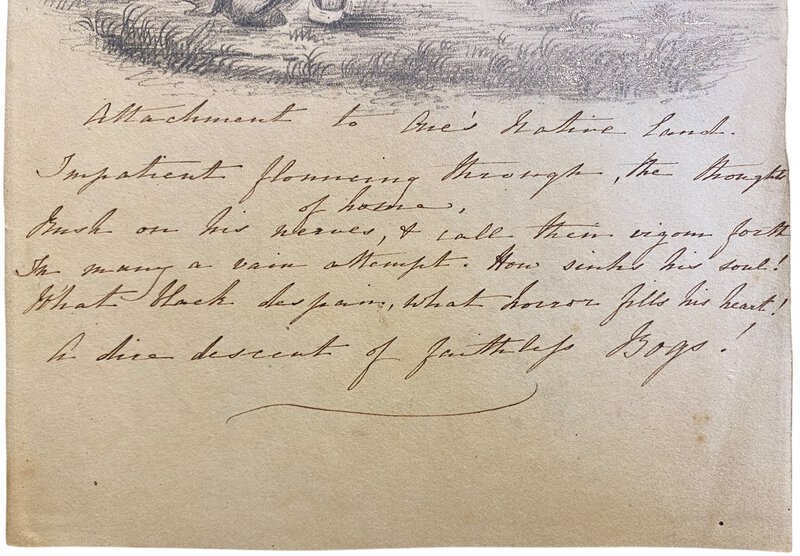 Attachment to One's Native land.
Impatient flouncing through, the thoughts
of home,
Rush on his nerves, & call their vigour forth
In many a vain attempt. How sinks his soul!
What black despair, what horror fills his heart!
A dire descent of faithless Bogs!